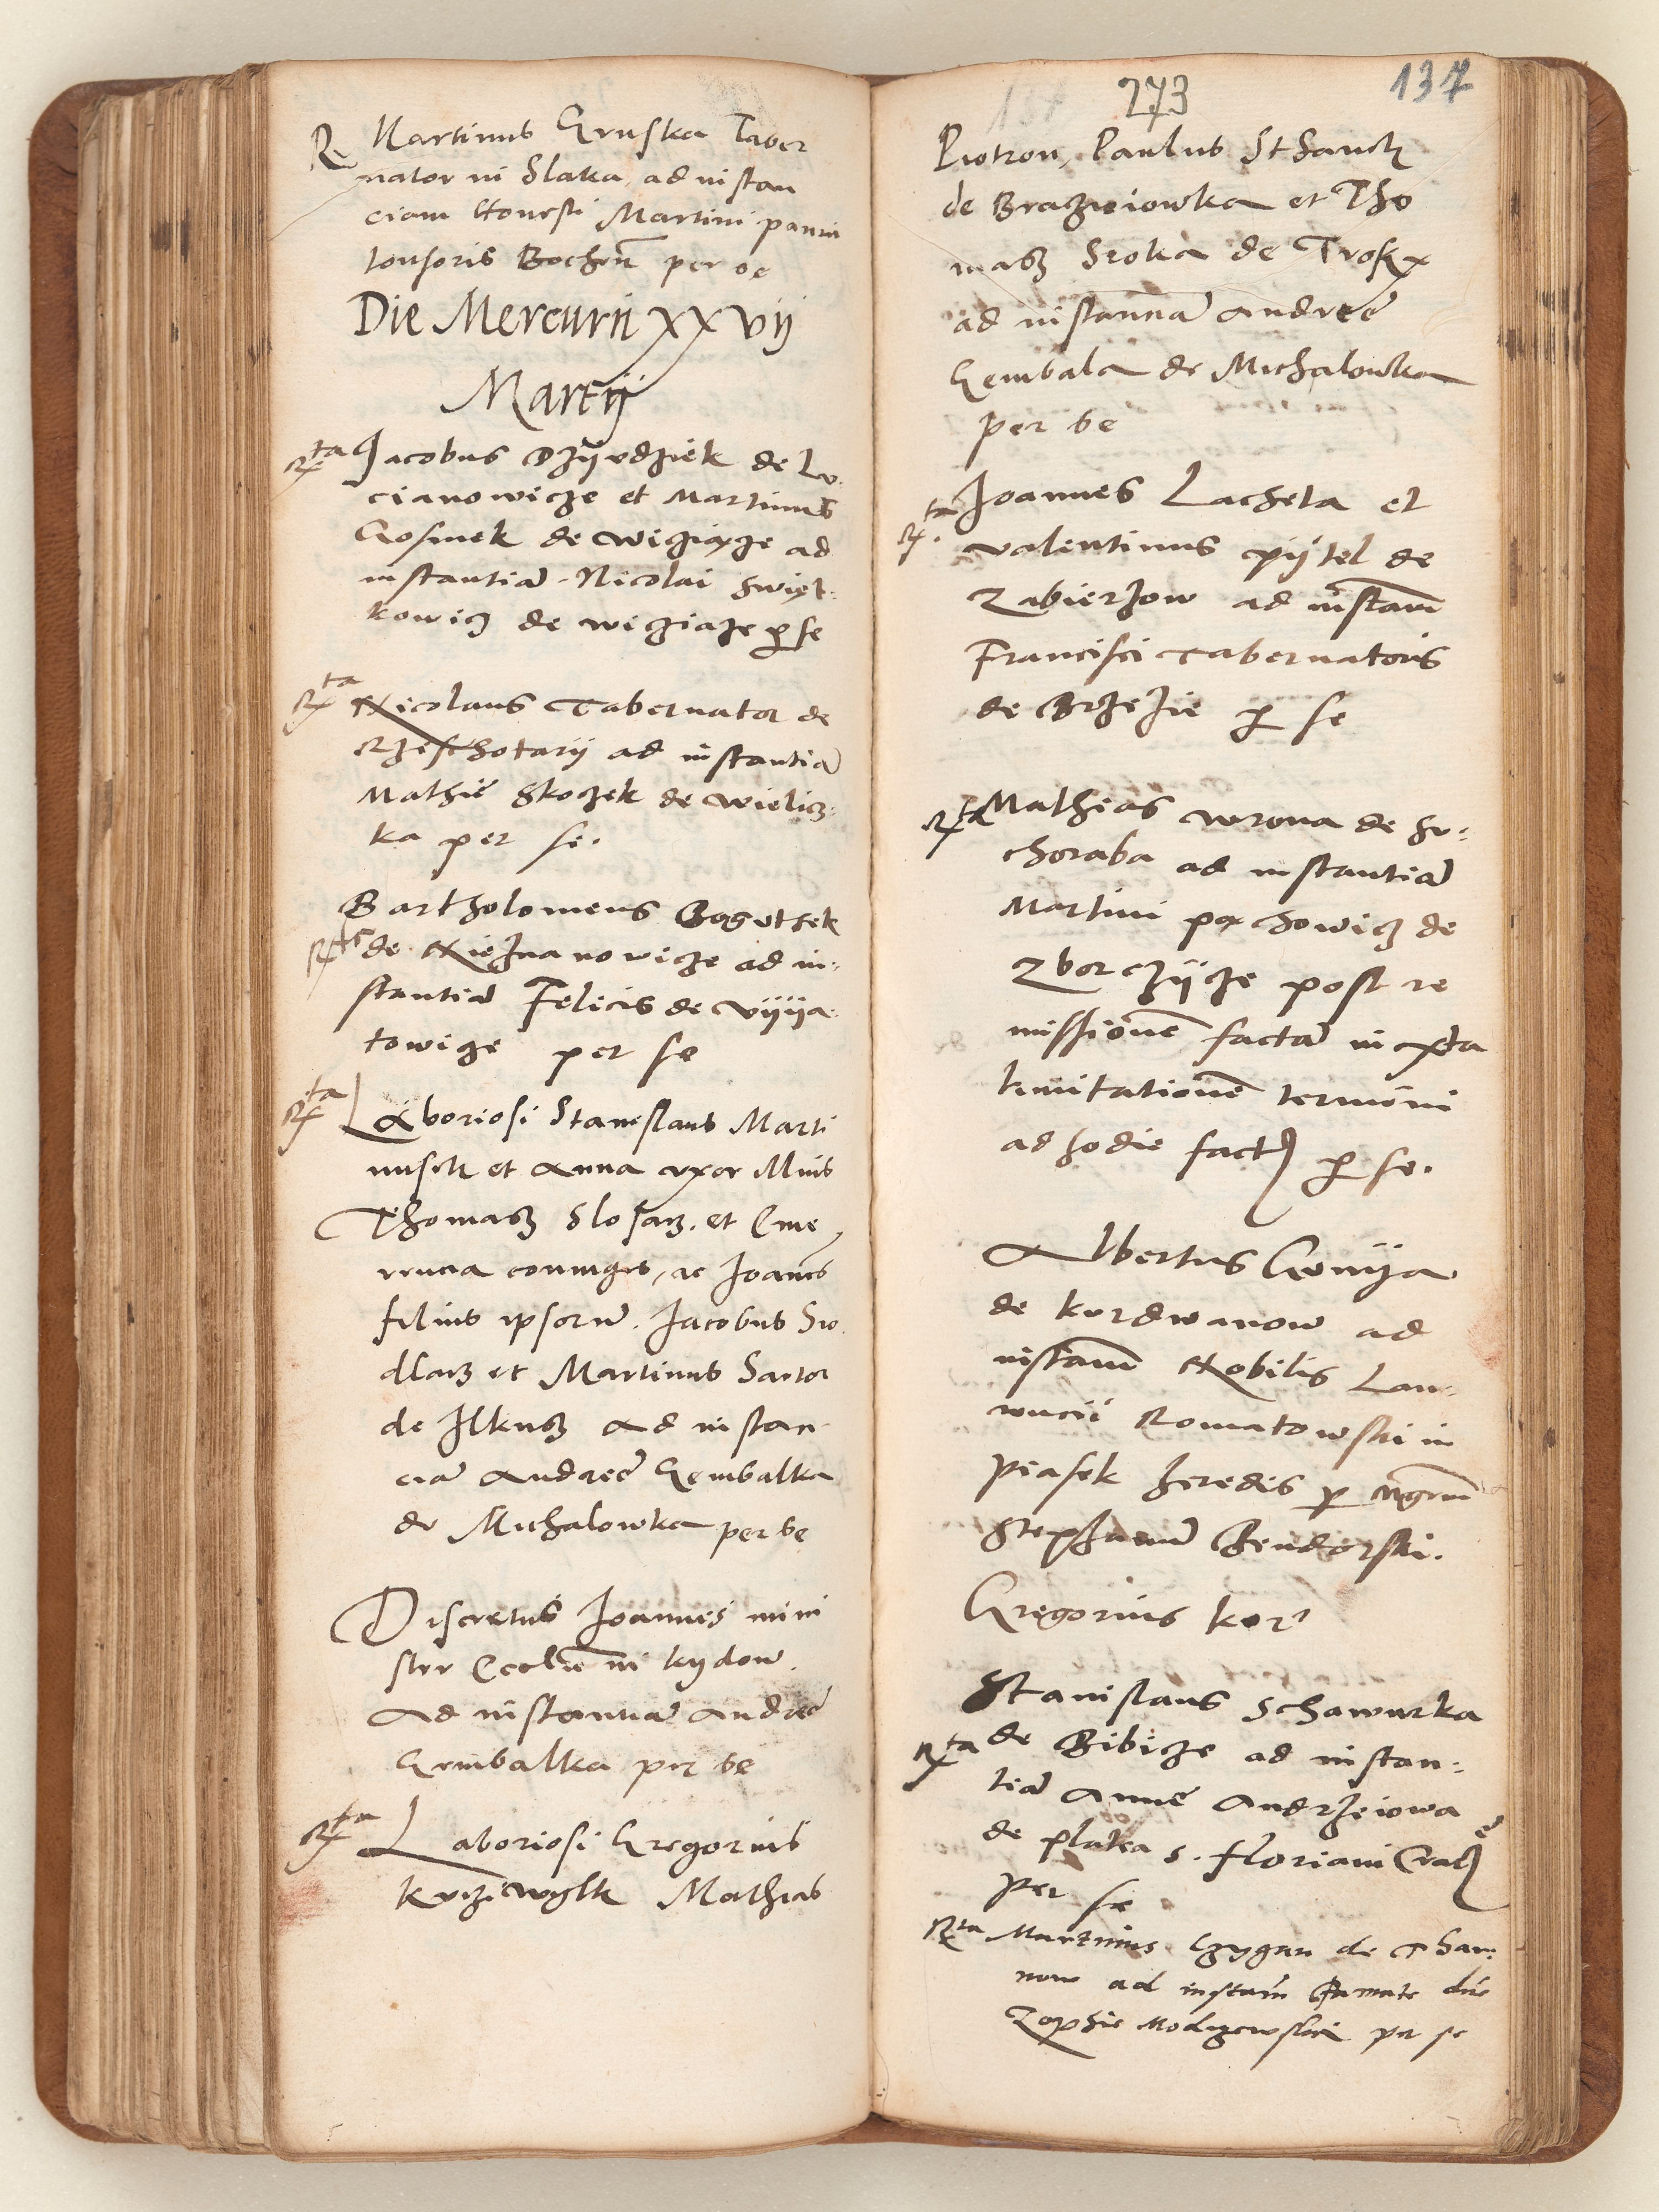 R Martinus Gruska Taber
nator in Slaka, ad instan
ciam Honesti Martini panni
tonsoris Bochen per se
Die Mercurii XXVII
Martij
Rta Jacobus Dzyvdziek de Lu-
cianowicze et Martinus
Gosmek de Wigiaze ad
instantia Nicolai Swiyt-
kowicz de wigiaze p se
Rta Nicolaus Tabernator de
Rzeschotarij ad instantia
Mathie Skoczek de Wielicz-
ka per se.
Bartholomeus Bogutsek
Rta de Nieznanowicze ad in-
stantia Felicis de Vijija-
towicze per se
Rta Laboriosi Stanislaus Marti
nusek et Anna uxor Illius
Thomasz Slosarz et Eme
renna coniuges, ac Joanes
filius ipsoru. Jacobus Sio
dlarz et Martinus Sartor
de Ilkusz ad instan
cia Andree Gembalka
de Michalowka per se
Discretus Joannes mini
ster Ecclie in kydow
ad instantia Andree
Gembalka per se
Rta Laboriosi Gregorius
krziwoylk Mathias
273
137
Piotron, Paulus Sthanek
de Braziowka et Tho
masz Sroka de Troks
ad instanna Andree
Gembala de Michalowka
per se
Rta Joannes Lacheta et
Valentinus pijtel de
Zabierzow ad instam
Francisci Tabernatoris
de Brzezie p se
Rta Mathias wrona de Su-
choraba ad instantia
Martini pachowicz de
Zborczijcze post re
missione facta iuxta
limitatione termini
ad hodie fact p se.
Albertus Gonija
de kurdwanow ad
instam Nobilis Lau-
rencii Romatowski in
Piasek heredis p mgrm
Stephanu Bendorski.
Gregorius kor
Stanislaus Schawurka
Rta de Bibicze ad instan-
tia Anne Andrzeiowa
de platea S. Floriani Crac
per se
Rta Martinus Czygan de Thar-
now ad instam famate dne
Zophie Modrzewska per se